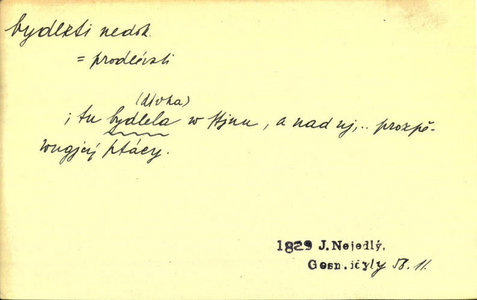 bydleti nedok.
= prodlévati
(dívka)
i tu bydlela w stjnu, a nad nj,.. prozpě-
wugjcý ptácy.
1829 J. Nejedlý,
Gesn. 11.